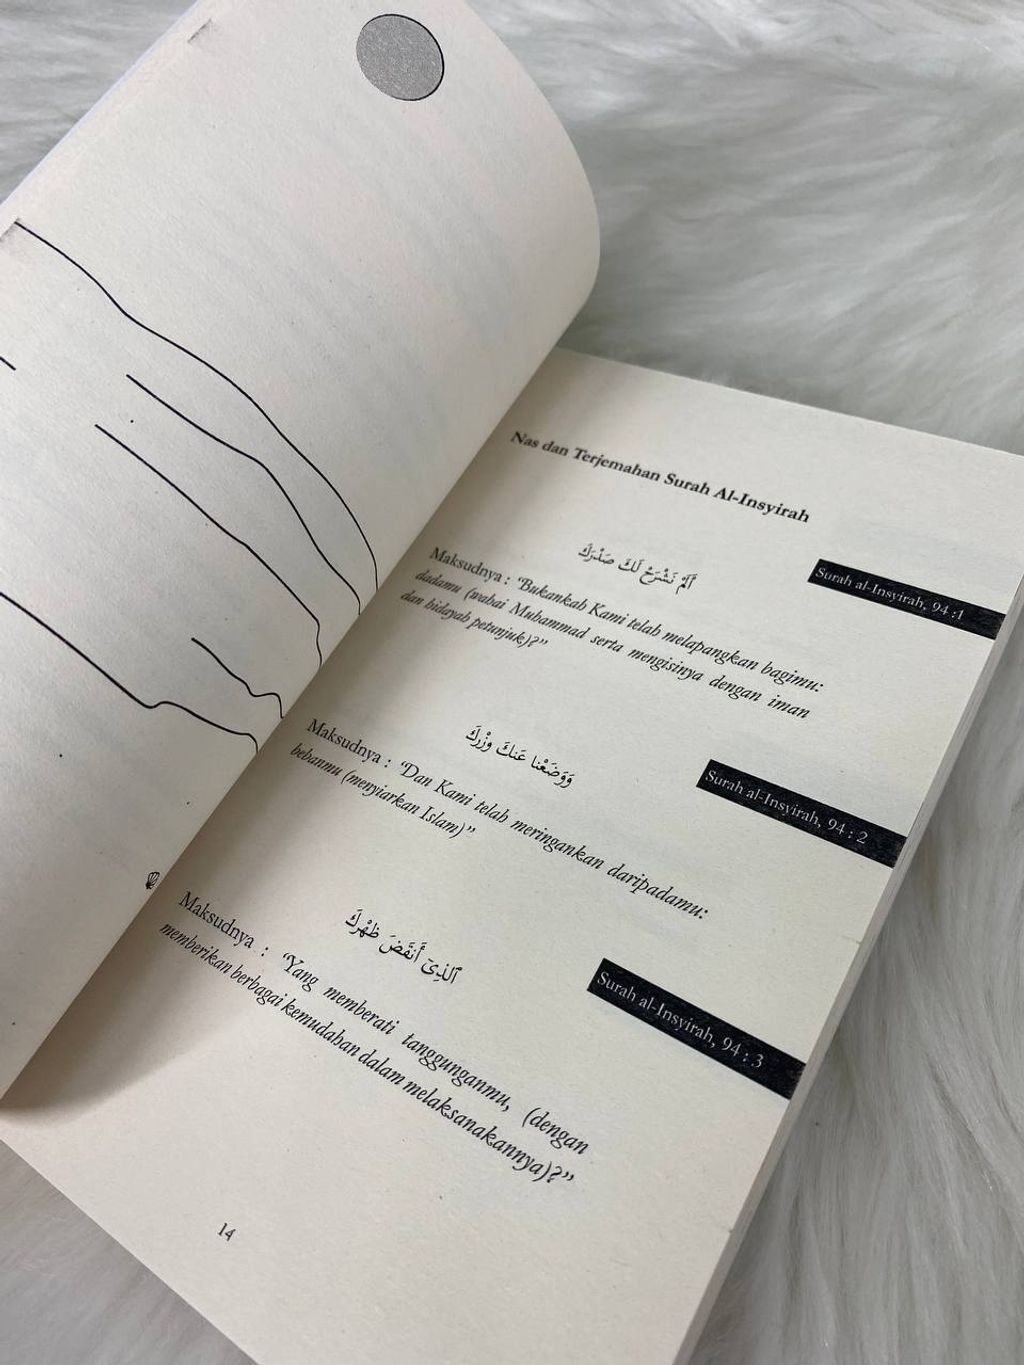 Nas dan Terjemahan Surah Al-Insyirah
أَلَمْ نَشْرَحْ لَكَ صَدْرَكَ
Surah al-Insyirah, 94 :1
Maksudnya : “Bukankah Kami telah melapangkan bagimu:
dadamu (wahai Muhammad serta mengisinya dengan iman
dan hidayah petunjuk)?”
وَوَضَعْنَا عَنكَ وِزْرَكَ
Surah al-Insyirah, 94 : 2
Maksudnya : “Dan Kami telah meringankan daripadamu:
bebanmu (menyiarkan Islam)”
ٱلَّذِىٓ أَنقَضَ ظَهْرَكَ
Surah al-Insyirah, 94 : 3
Maksudnya : “Yang memberati tanggunganmu, (dengan
memberikan berbagai kemudahan dalam melaksanakannya)?”
14